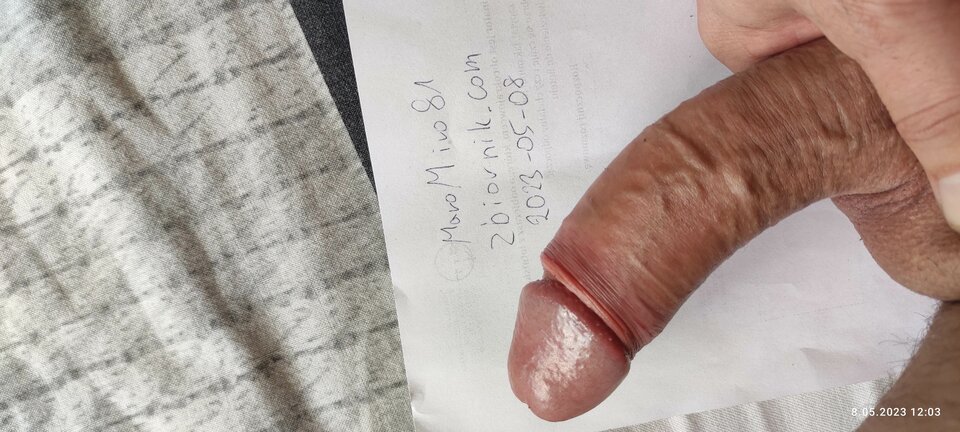 MaroMiro81
zbiornik.com
2023-05-08
8.05.2023 12:03